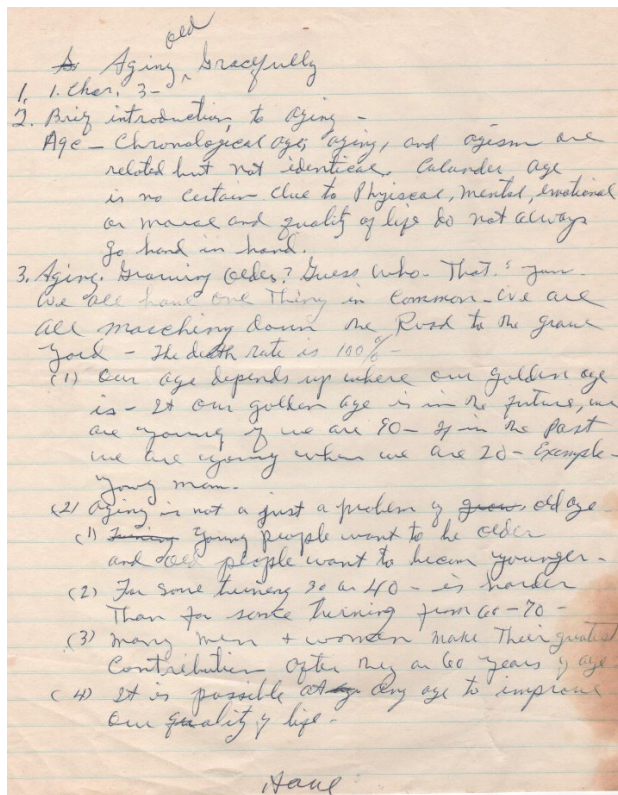 old
Aging Gracefully
1. 1. Char. 3-
2. Brief introduction to aging -
Age - Chronological age, aging, and agism are
related but not identical. Calander age
is no certain clue to Phyiscal, mental, emotional
or morale and quality of life do not always
go hand in hand.
3. Aging. Growing older? Guess who - That.
We all have one Thing in Common - We are
all marching down the Road to the grave
Yard - The death rate is 100% -
(1) Our age depends up where our golden age
is - If our golden age is in the future, we
are young if we are 90 - If in the Past
we are when we are 20 - Example -
young man.
(2) Aging is not a just a problem of old age
(1) young people want to be older
and old people want to becom younger -
(2) For some turning 30 or 40 - is harder
Than for some turning from 60 - 70 -
(3) many men + women make Their greatest
Contribution after they are 60 years of age
(4) It is possible any age to improve
our quality of life -